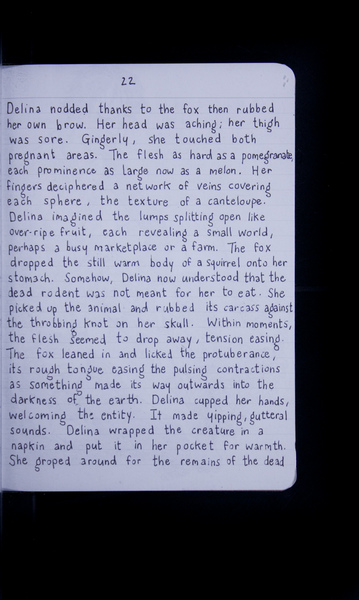 22
Delina nodded thanks to the fox then rubbed
her own brow. Her head was aching; her thigh
was sore. Gingerly, she touched both
pregnant areas. The flesh as hard as a pomegranate,
each prominence as large now as a melon. Her
fingers deciphered a network of veins covering
each sphere, the texture of a canteloupe.
Delina imagined the lumps splitting open like
over-ripe fruit, each revealing a small world,
perhaps a busy marketplace or a farm. The fox
dropped the still warm body of a squirrel onto her
stomach. Somehow, Delina now understood that the
dead rodent was not meant for her to eat. She
picked up the animal and rubbed its carcass against
the throbbing knot on her skull. Within moments,
the flesh seemed to drop away, tension easing.
The fox leaned in and licked the protuberance,
its rough tongue easing the pulsing contractions
as something made its way outwards into the
darkness of the earth. Delina cupped her hands,
welcoming the entity. It made yipping, gutteral
sounds. Delina wrapped the creature in a
napkin and put it in her pocket for warmth.
She groped around for the remains of the dead